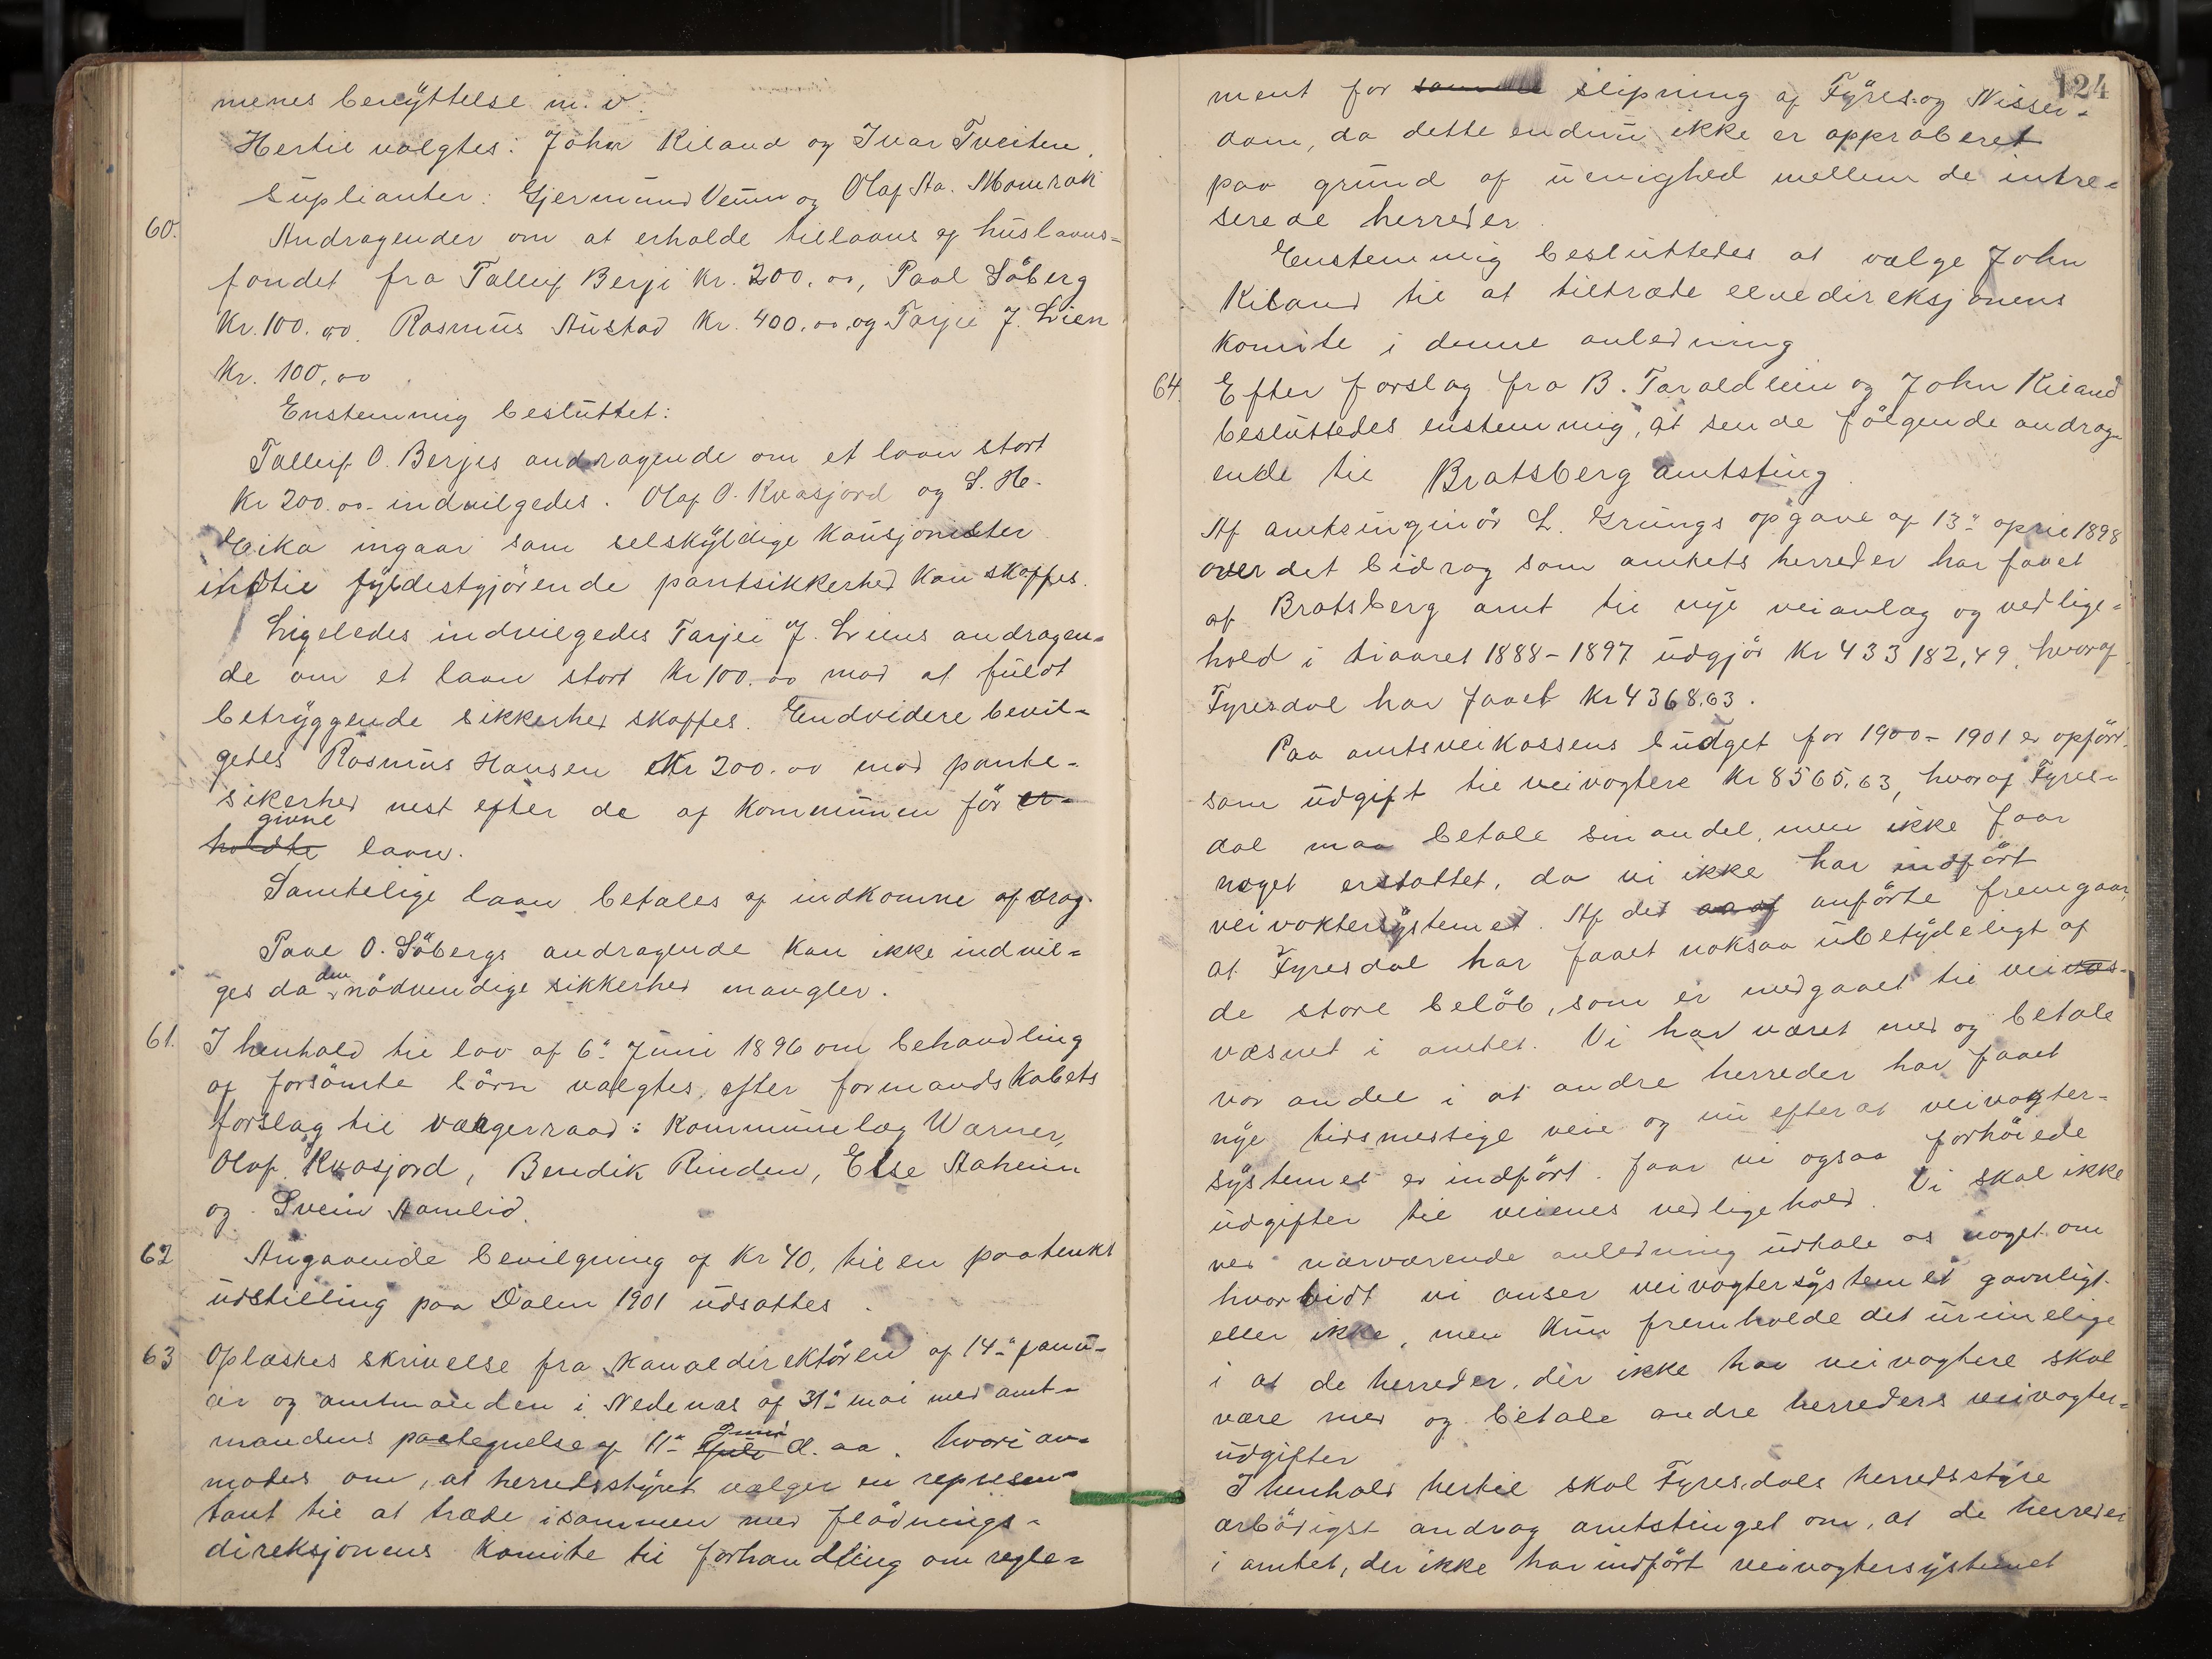 menes benyttelse m. v.
Hertil valgtes: John Kiland og Ivar Tveiten.
Suplianter: Gjermund Veum og Olaf Aa. Momrak
60. Andragender om at erholde tillaans af huslaans-
fondet fra Talluf Berji kr. 200.00, Paal Söberg
kr. 100.00 Rasmus Austad kr. 400.00, og Tarjei J. Lien
kr. 100,00
Enstemmig besluttet:
Talluf O. Berjes andragende om et laan stort
kr 200.00 indvilgedes. Olaf O. Kvasjord og S. H.
Eika ingaar som selskyldige kausjonister
indtil fyldestgjörende pantsikkerhed kan skaffes.
Ligeledes indvilgedes Tarjei J. Liens andragen-
de om et laan stort kr 100.00 mod at fuldt
betryggende sikkerhed skaffes. Endvidere bevil-
gedes Rasmus Hansen kr 200.00 mod pante-
sikerhed nest efter de af kommunen för er-
givne
holdte laan.
Samtelige laan betales af indkomne afdrag.
Paal O. Söbergs andragende kan ikke indvil-
ges da den nödvendige sikkerhed mangler.
61. I henhold til lov af 6te Juni 1896 om behandling
af forsömte börn valgtes, efter formandskabets
forslag til værgeraad: kommunelæg Warner,
Olaf Kvasjord, Bendik Rinden, Else Aaheim
og Svein Aamlid.
62 Angaaende bevilgning af kr 40, til en paatenkt
udstilling paa Dalen 1901 udsattes.
63 Oplæstes skrivelse fra kanaldirektören af 14de janu-
ar og amtmanden i Nedenæs af 31te mai med amt-
mandens paategnelse af 11te juli juni d. aa. hvori an-
modes om, at herredsstyret vælger en represen-
tant til at træde isammen med flödnings-
direksjonens komite til forhandling om regle-
124
ment for samme slipning af Fyres- og Nisser-
dam, da dette endnu ikke er approberet
paa grund af uenighed mellem de intre-
serede herreder.
Enstemmig besluttedes at vælge John
Kiland til at tiltræde elvedireksjonens
komite i denne anledning
64. Efter forslag fra B. Taraldlien og John Kiland
besluttedes enstemmig, at sende fölgende andrag-
ende til Bratsberg amtsting.
Af amtsingeniör L. Grungs opgave af 13de april 1898
over det bidrag som amtets herreder har faaet
af Bratsberg amt til nye veianlæg og vedlige-
hold i tiaaret 1888-1897 udgjör kr 433 182,49, hvoraf
Fyresdal har faaet kr 4368.63.
Paa amtsveikassens budget for 1900-1901 er opfört
som udgift til veivogtere kr 8565.63, hvoraf Fyres-
dal maa betale sin andel, men ikke faar
noget erstattet, da vi ikke har indfört
veivoktersystemet. Af det anförte fremgaar,
at Fyresdal har faaet noksaa ubetydeligt af
de store belöb, som er medgaaet til veivæs-
væsnet i amtet. Vi har været med og betale
vor andel i at andre herreder har faaet
nye tidsmessige veie og nu efter at veivogter-
systemet er indfört faar vi ogsaa forhöiede
udgifter til veienes vedligehold. Vi skal ikke
ved nærværende anledning udtale os noget om
hvorvidt vi anser veivogtersystemet gavnligt
eller ikke, men kun fremholde det urimelige
i at de herreder, der ikke har veivogtere skal
være med og betale andre herreders veivogter-
udgifter
I henhold hertil skal Fyresdals herredsstyre
ærbödigst andrag amtstinget om, at de herreder
i amtet, der ikke har indfört veivogtersystemet